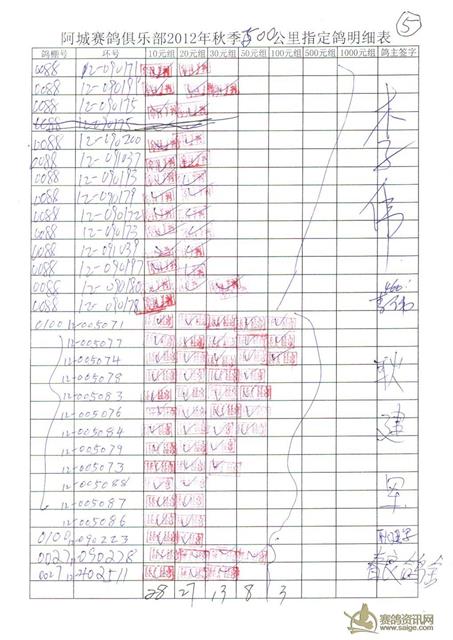 ⑤
阿城赛鸽俱乐部2012年秋季500公里指定鸽明细表
鸽棚号 环号 10元组 20元组 30元组 50元组 100元组 200元组 500元组 1000元组 鸽主签字
0088 12-090171
0088 12-090191
0088 12-090175
0088 12-090175
0088 12-090200
0088 12-090037
0088 12-090193
0088 12-090179
0088 12-090172
0088 12-090173
0088 12-091039
0088 12-090197
0088 12-090180
0088 12-090178
0100 12-005071
12-005077
12-005074
12-005078
12-005083
12-005076
12-005084
12-005079
12-005073
12-005088
12-005087
12-005086
0100 12-090223
0027 12-090278
0027 12-202511
28 27 13 8 3
耿建军
赛鸽资讯网
www.saige.com